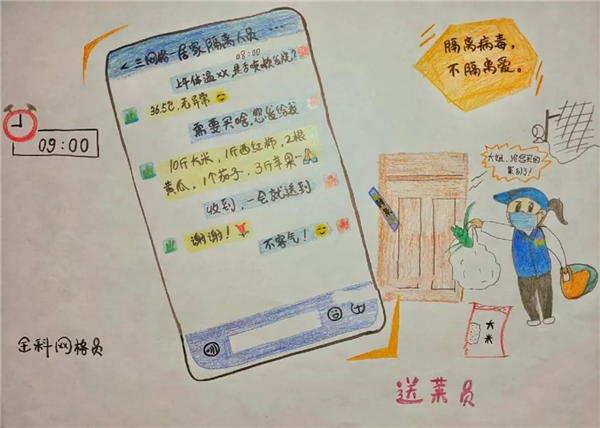 < 三网格-居家隔离人员 ...
08:00
上午体温xx 是否咳嗽发烧?
36.5℃,无异常
需要买啥,您发给我
10斤大米,1斤西红柿,2根
黄瓜,1个茄子,3斤苹果
收到,一会就送到
谢谢!
不客气!
09:00
金科网格员
隔离病毒,
不隔离爱。
大姐,给您买的
菜到了!
大米
送菜员